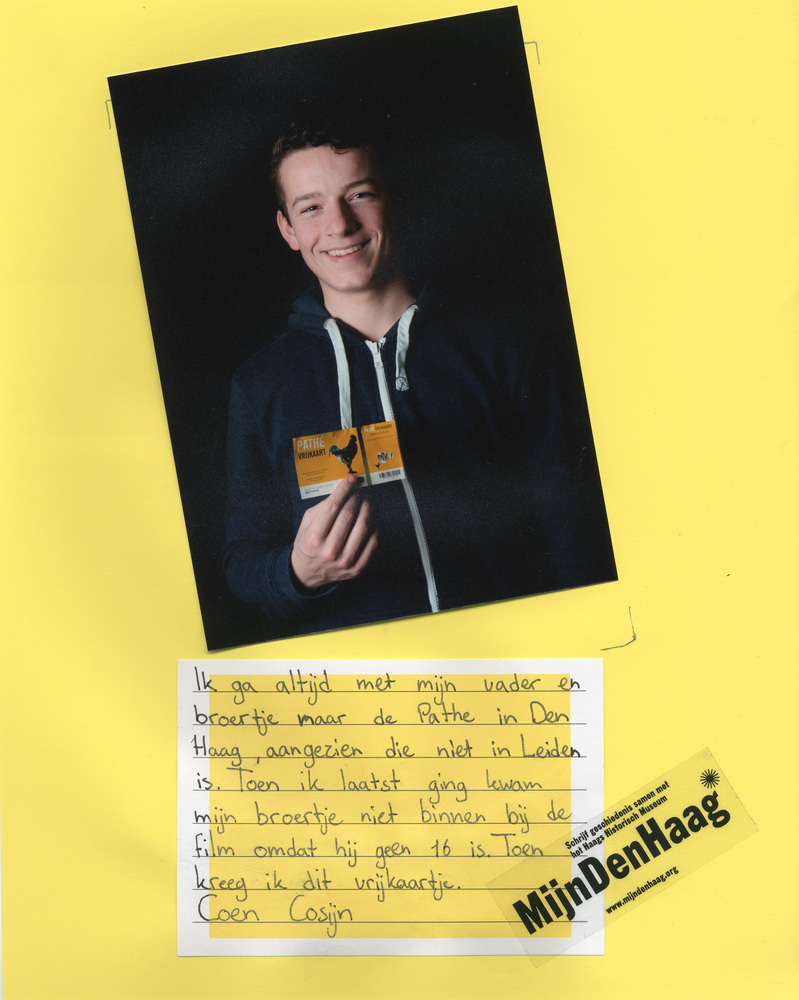 PATHÉ
VRIJKAART
VRIJKAART
Ik ga altijd met mijn vader en
broertje maar de Pathe in Den
Haag, aangezien die niet in Leiden
is. Toen ik laatst ging kwam
mijn broertje niet binnen bij de
film omdat hij geen 16 is. Toen
kreeg ik dit vrijkaartje.
Coen Cosijn
Schrijf geschiedenis samen met
het Haags Historisch Museum
MijnDenHaag
www.mijndenhaag.org